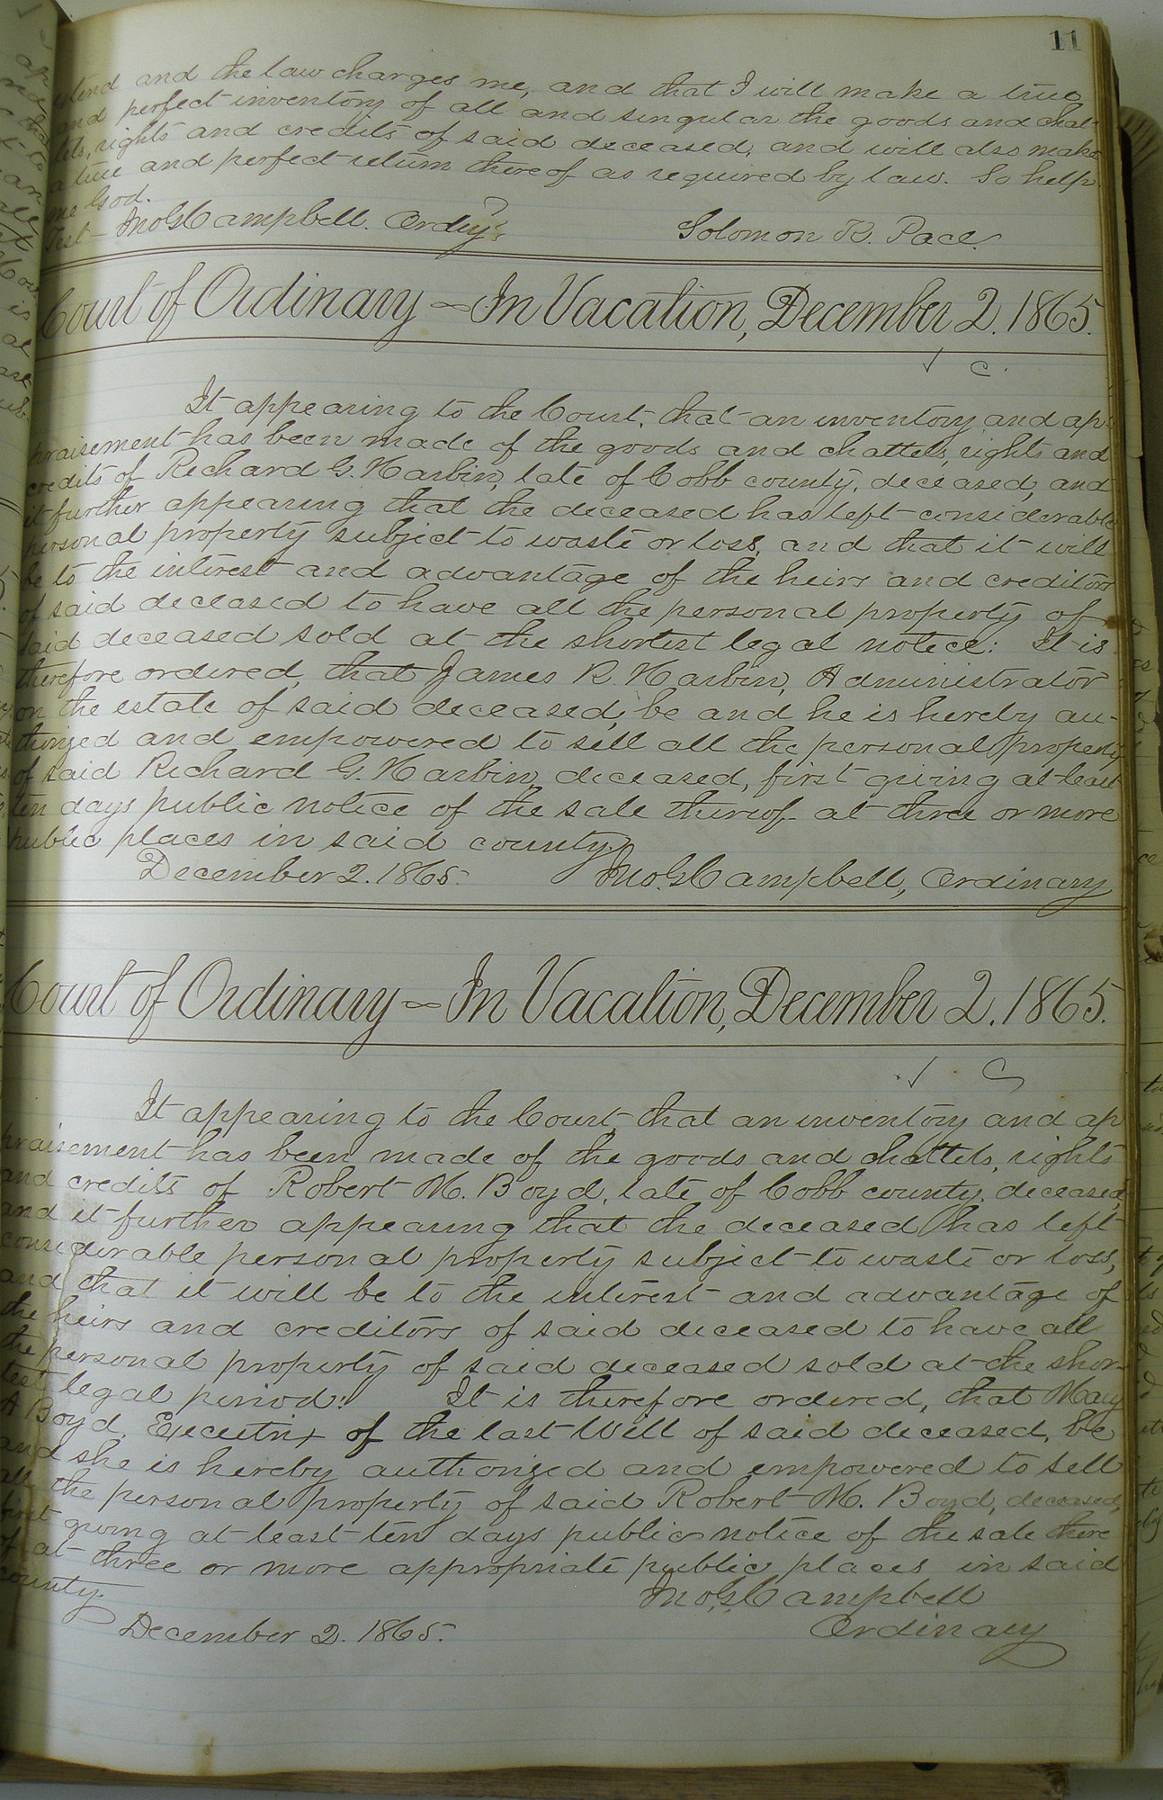 11
extend and the law charges me, and that I will make a true
and perfect inventory of all and singular the goods and chat-
tels, rights and credits of said deceased, and will also make
a true and perfect return thereof as required by law. So help
me God.
Test- Jno. G. Campbell. Ordy. Solomon K. Pace.
Court of Ordinary — In Vacation, December 2. 1865.
√ C.
It appearing to the Court, that an inventory and ap-
praisement has been made of the goods and chattels, rights and
credits of Richard G. Harbin, late of Cobb county, deceased, and
it further appearing that the deceased has left considerable
personal property subject to waste or loss, and that it will
be to the interest and advantage of the heirs and creditors
of said deceased to have all the personal property of
said deceased sold at the shortest legal notice: It is
therefore ordered, that James R. Harbin, Administrator
on the estate of said deceased, be and he is hereby au-
thorized and empowered to sell all the personal property
of said Richard G. Harbin, deceased, first giving at least
ten days public notice of the sale thereof at three or more
public places in said county.
December 2. 1865. Jno. G. Campbell, Ordinary
Court of Ordinary — In Vacation, December 2. 1865.
√ C
It appearing to the Court, that an inventory and ap
praisement has been made of the goods and chattels, rights
and credits of Robert M. Boyd, late of Cobb county, deceased,
and it further appearing that the deceased has left
considerable personal property subject to waste or loss,
and that it will be to the interest and advantage of
the heirs and creditors of said deceased to have all
the personal property of said deceased sold at the shor-
test legal period: It is therefore ordered, that Mary
A Boyd, Executrix of the last Will of said deceased, be
and she is hereby authorized and empowered to sell
all the personal property of said Robert M. Boyd, deceased,
first giving at least ten days public notice of the sale there
of at three or more appropriate public places in said
county. Jno. G. Campbell
December 2. 1865. Ordinary